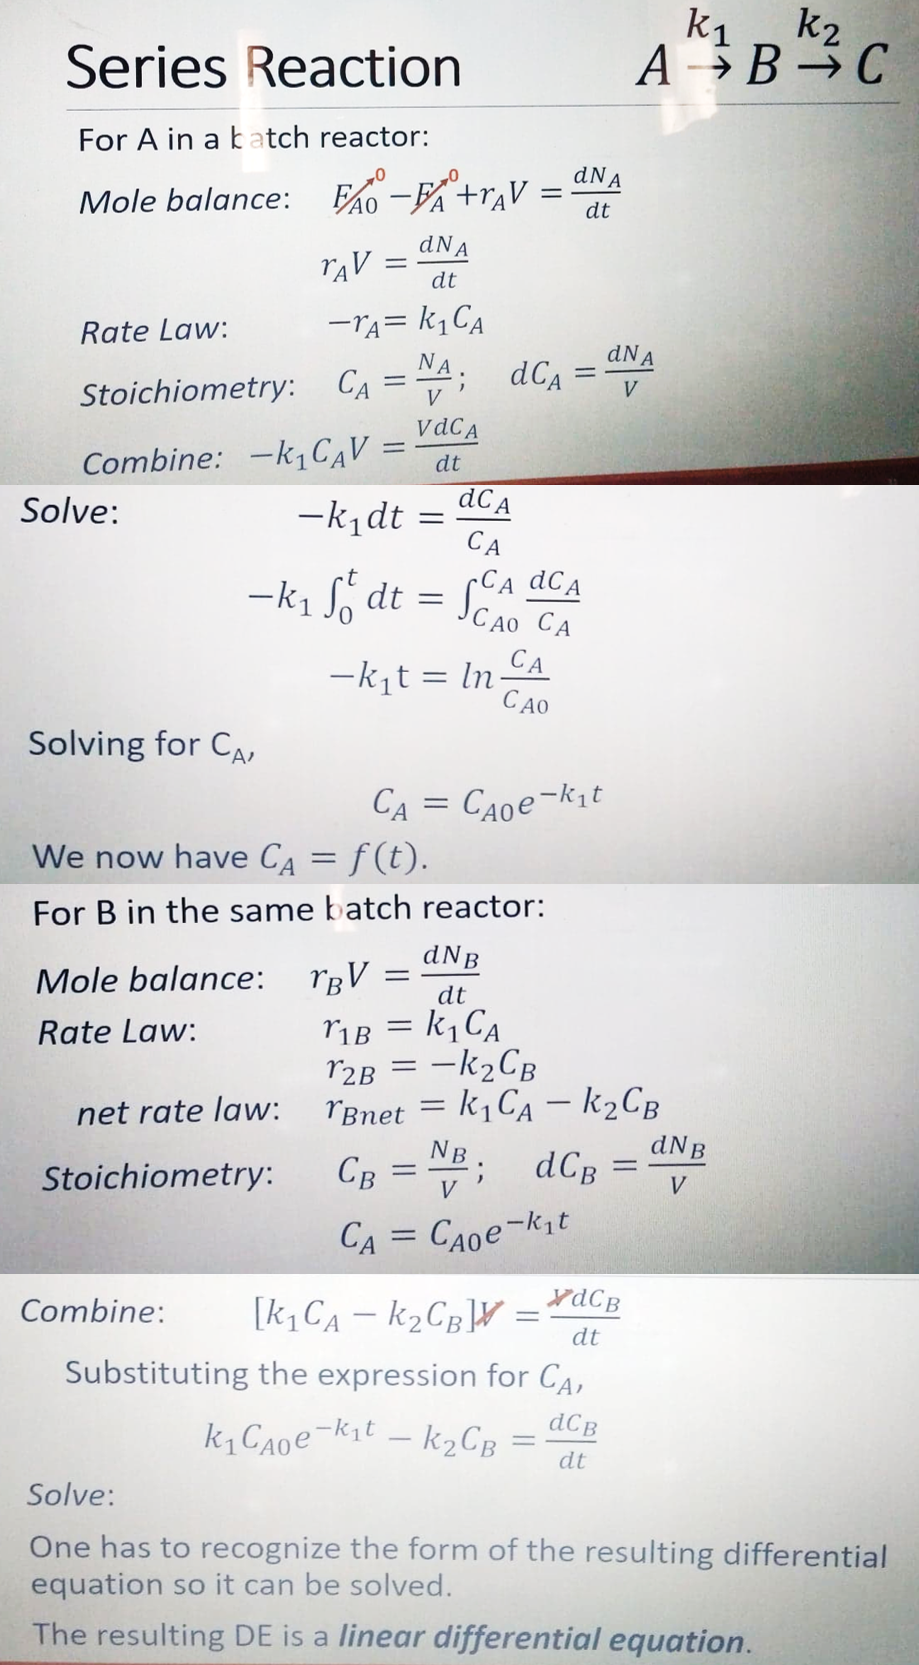 Series Reaction
A \xrightarrow{k_1} B \xrightarrow{k_2} C
For A in a batch reactor:
Mole balance: F_{A0}↗0 − F_A↗0 + r_A V = \frac{dN_A}{dt}
r_A V = \frac{dN_A}{dt}
Rate Law: −r_A = k_1 C_A
Stoichiometry: C_A = \frac{N_A}{V}; dC_A = \frac{dN_A}{V}
Combine: −k_1 C_A V = \frac{V dC_A}{dt}
Solve: −k_1 dt = \frac{dC_A}{C_A}
−k_1 \int_0^t dt = \int_{C_{A0}}^{C_A} \frac{dC_A}{C_A}
−k_1 t = ln \frac{C_A}{C_{A0}}
Solving for C_A,
C_A = C_{A0} e^{−k_1 t}
We now have C_A = f(t).
For B in the same batch reactor:
Mole balance: r_B V = \frac{dN_B}{dt}
Rate Law: r_{1B} = k_1 C_A
r_{2B} = −k_2 C_B
net rate law: r_{Bnet} = k_1 C_A − k_2 C_B
Stoichiometry: C_B = \frac{N_B}{V}; dC_B = \frac{dN_B}{V}
C_A = C_{A0} e^{−k_1 t}
Combine: [k_1 C_A − k_2 C_B]V = \frac{V dC_B}{dt}
Substituting the expression for C_A,
k_1 C_{A0} e^{−k_1 t} − k_2 C_B = \frac{dC_B}{dt}
Solve:
One has to recognize the form of the resulting differential
equation so it can be solved.
The resulting DE is a linear differential equation.